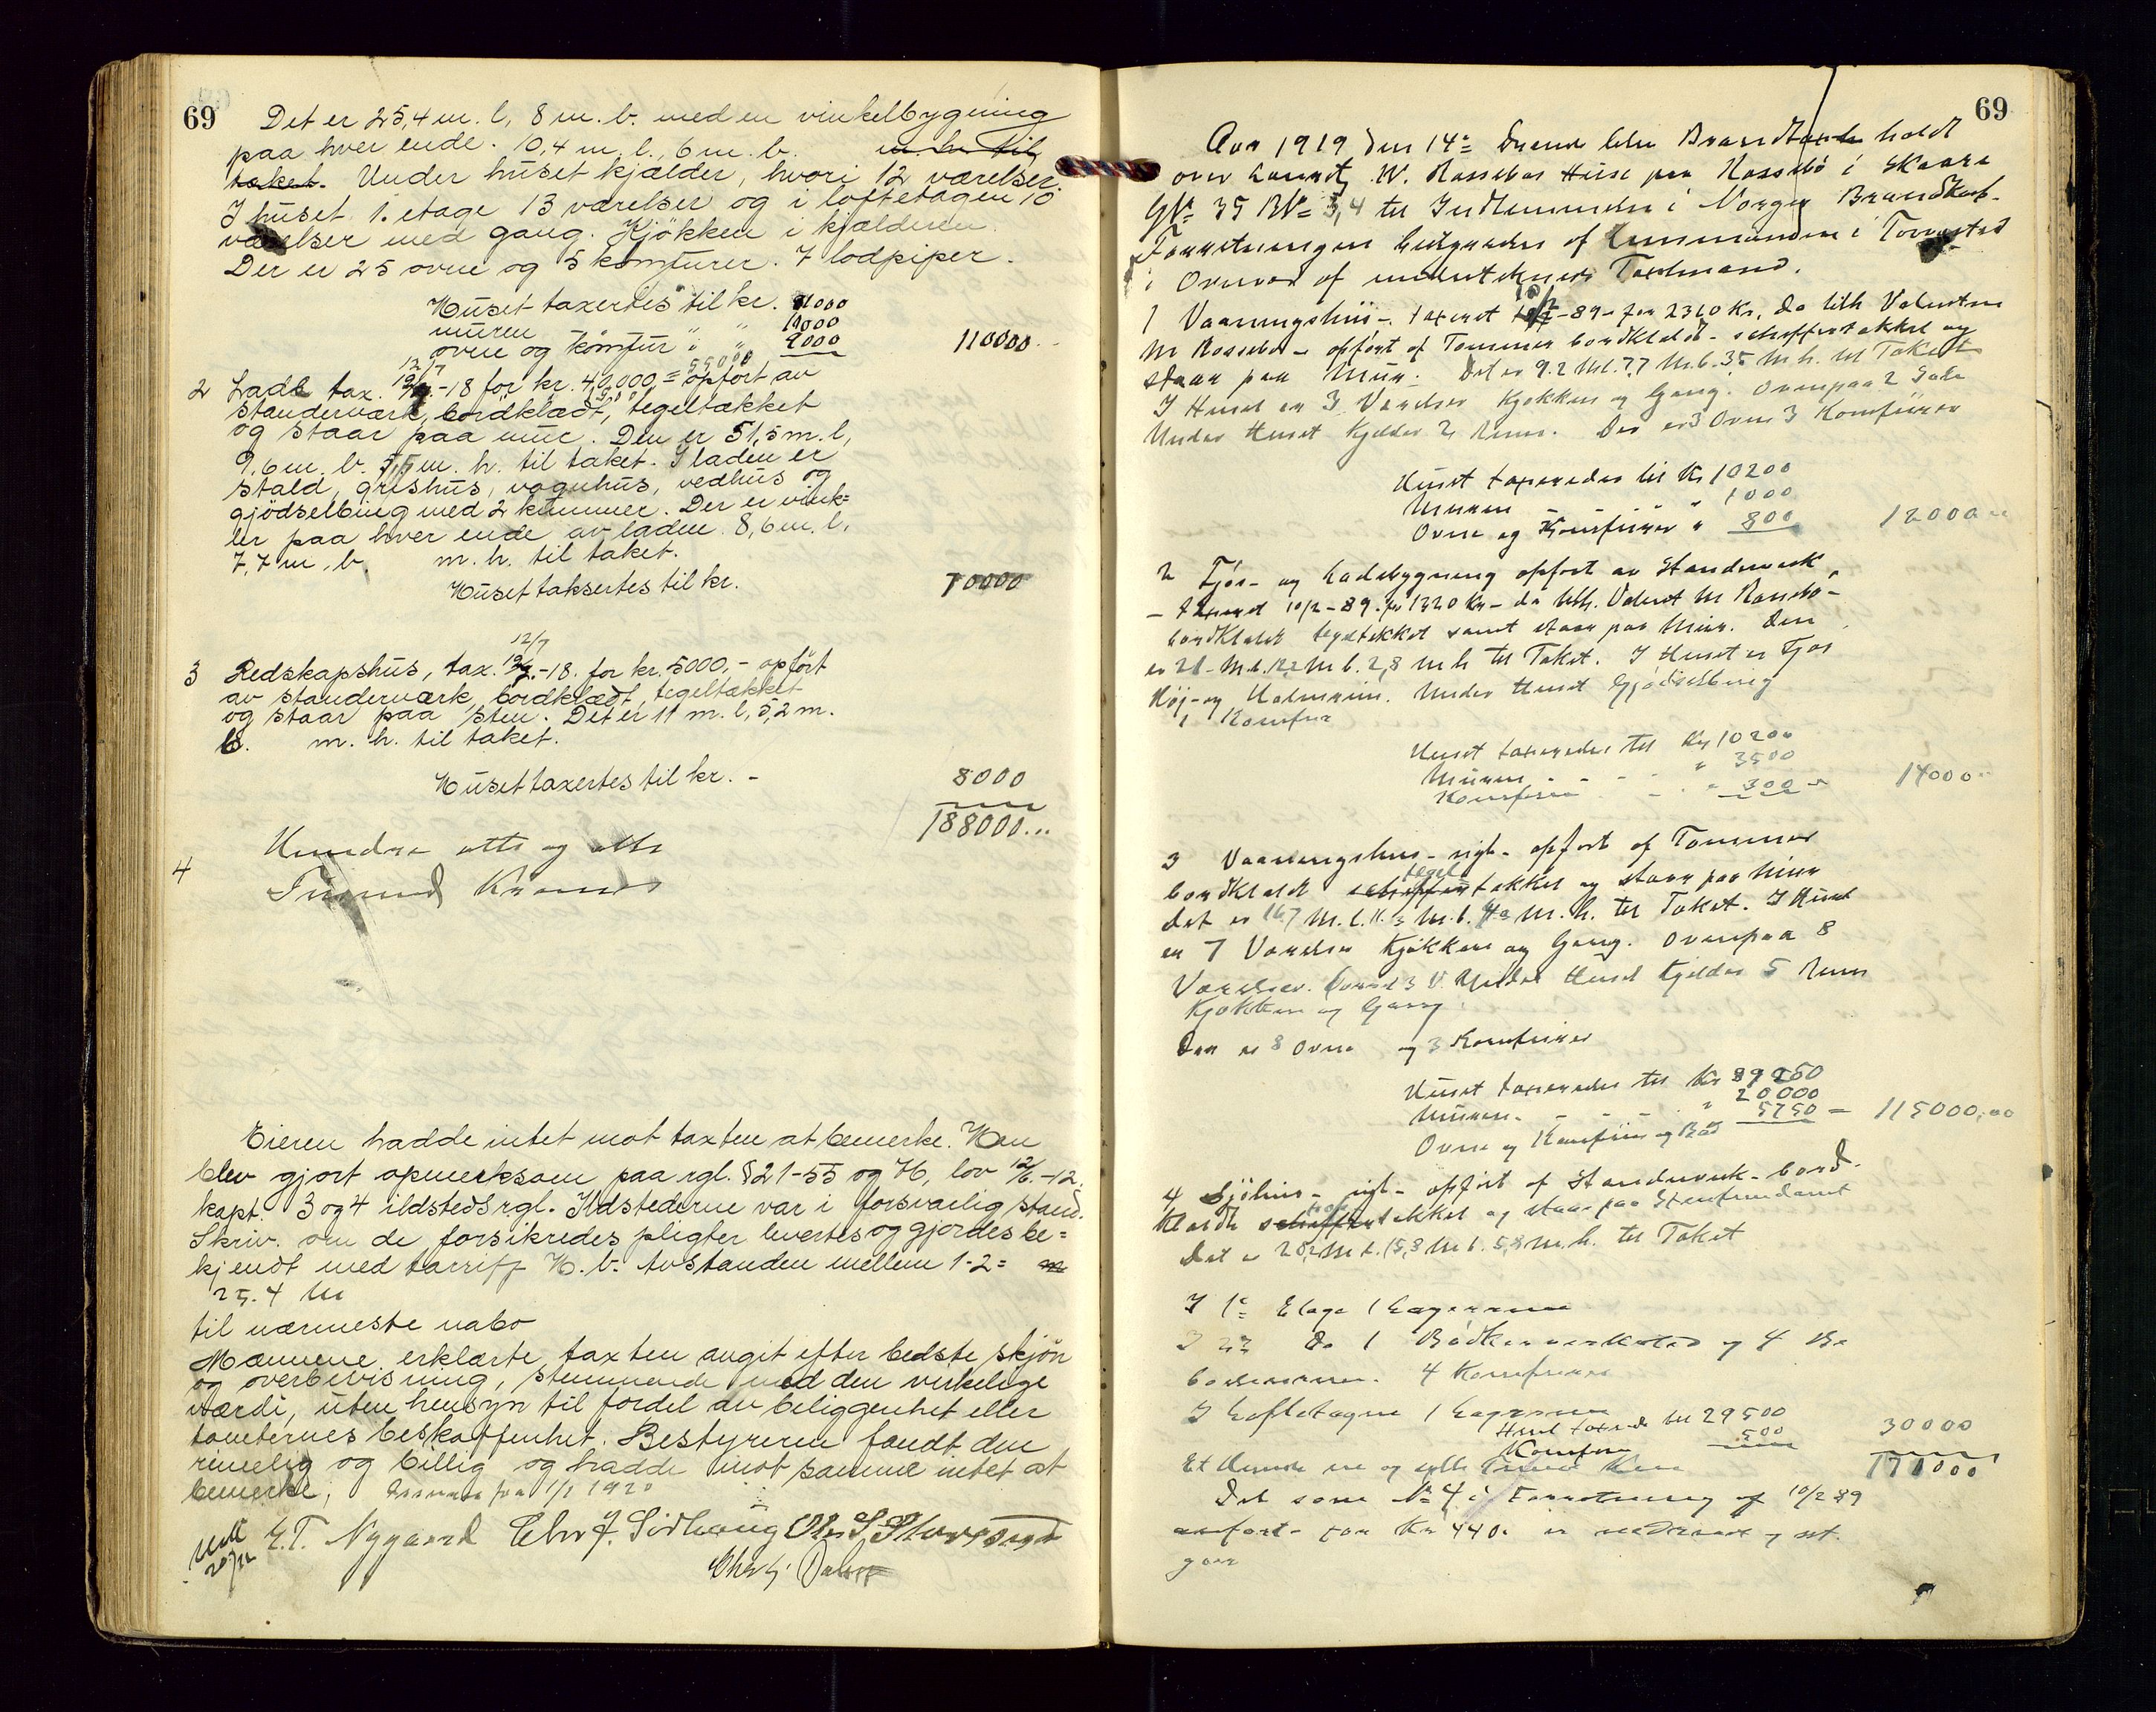 69
Det er 25,4 m. l, 8 m. b. med en vinkelbygning
paa hver ende. 10,4 m. l., 6 m. b. m. h. til
taket. Under huset kjælder, hvori 12 værelser.
I huset 1. etage 13 værelser og i loftetagen 10
værelser med gang. Kjökken i kjælderen.
Der er 25 ovne og 5 komfurer. 7 lodpiper.
Huset taxertes til kr. 91000
muren " " 10000
ovne og komfur " " 9000 110000
12/7 55000
2 Lade tax. -18 for kr. 40,000,= opfört av
standerværk, bordklædt, tegeltækket
og staar paa mur. Den er 51,5 m. l,
9,6 m. b. 5,5 m. h. til taket. I laden er
stald, grishus, vognhus, vedhus og
gjödselbing med 2 kummer. Der er vink=
ler paa hver ende av laden 8,6 m. l,
7,7 m, b. m. h. til taket.
Huset taksertes til kr. 70000
12/7
3 Redskapshus, tax. -18. for kr. 5000,- opfört
av standerværk, bordklædt, tegeltækket
og staar paa sten. Det er 11 m. l, 5,2 m.
b. m. h. til taket.
Huset taxertes til kr. - 8000
188000...
Hundre otti og otte
4 Tusend Kroner
Eieren hadde intet mot taxten at bemerke. Han
blev gjort opmerksom paa rgl. § 21-55 og 76, lov 12/6.-12.
kapt. 3 og 4 ildstedsrgl. Ildstederne var i forsvarlig stand.
Skriv. om de forsikredes pligter levertes og gjordes be=
kjendt med tarriff H. b. Avstanden mellem 1-2= m
25.4 m
til nærmeste nabo
Mænnene erklærte taxten avgit efter bedste skjön
og overbevisning, stemmende med den virkelige
værdi, uten hensyn til fordel av beliggenhet eller
tomternes beskaffenhet. Bestyreren fandt den
rimelig og billig og hadde mot samme intet at
bemerke, fra 1/1 1920
E. T. Nygaard
69
Aar 1919 den 14= blev Brandtaxt holdt
over W. Rossebøs Huse paa Rossebø i Skaare
GN= 35 BN= 3,4 til Indlemmelse i Norges Brandkas-
Forretningen af Lensmanden i Torvastad
i Overvær af undertegnede Taxtmænd.
1 Vaaningshus - taxeret 10/2 -89- for 2310 Kr, da tilh Valentin
M Rossebø - opført af Tømmer bordklædt - skiffertækket og
staar paa Mur. Det er 9.2 M l. 7,7 M. b. 35 M. h. til Taket
I Huset er 3 Værelser Kjøkken og Gang. Ovenpaa 2 Sale
Under Huset Kjelder 2 Rum. Der er 3 Ovne 3 Komfurer
Huset taxeredes til Kr 10200
Muren - " 1000
Ovne og Komfurer " 800 12000
2 Fjøs- og Ladebygning opført av Standerverk
- taxeret 10/2 -89- for 1320 Kr - da tilh. Valent M Rossebø -
bordklædt tegeltækket samt staar paa Mur. Den
er 21 - M. l. 12,2 M b. 2,8 M h til Taket. I Huset er Fjøs
Høj- og Halmrum. Under Huset Gjødselbing
1 Komfur
Huset taxeredes til Kr 10200
Muren - - - " 3500
Komfuren - - " 300 14000
3 Vaaningshus - nyt - opført af Tømmer
tegel
bordklædt skiffertækket og staar paa Mur
Det er 16,7 M. l. M. b. M. h. til Taket. I Huset
er 7 Værelser Kjøkken og Gang. Ovenpaa 8
Værelser. 3 V. Under Huset Kjelder 5 Rum
Kjøkken og Gang
Der er 8 Ovne og 3 Komfurer
Huset taxeredes til Kr 89250
Muren - - - " 20000
Ovne og Komfur og Bad 5750 = 115000,00
4 Sjöhus - nyt - opført af Standerverk - bord-
klædt skiffertækket og staar paa Stenfundament
Det er 25,2 M l. 15,8 M b. 5,8 M. h. til Taket
I 1= Etage 1 Lagerrum
I 2= Do 1 Bødkerverksted og 4
4 Komfurer
I Loftetagen 1 Lagerrum
Huset taxeredes til 29500
Komfurer 500 30000
Et Hundre en og sytti Tusen Kroner 171000
Det som N= 4 i Forretning af 10/2 89
anført - for Kr 440. er nedrevet og ut.
gaar